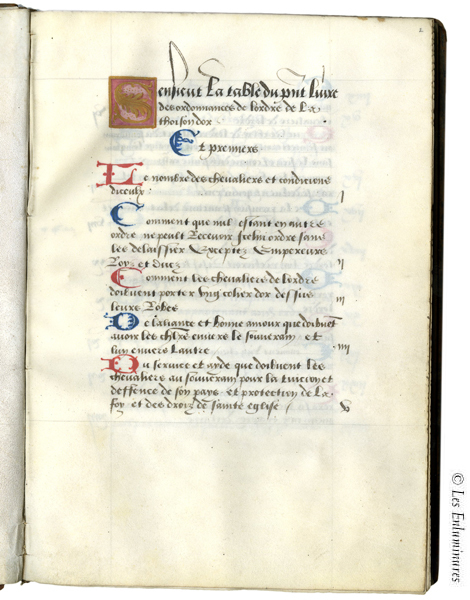 2
Ensieut La table du pnt Livre
des ordonnances de lordre de La
thoison dor
Et premiers
Le nombre des chevaliers et condicions
diceulx :
I
Comment que nul estant en autre
ordre ne peult Recevoir ycelui ordre sans
lee delaissier Exceptez Empereurs
Roys et ducz
II
Comment les chevaliers de lordre
doibvent porter ung colier dor dessus
leurs Robes
III
De laliance et bonne amour que doibvent
avoir les chlrs envers le souverain et
lun envers lautre
IIII
Du service et ayde que doibvent les
chevaliers au souverain pour la tuicion et
deffence de son pays et protection de La
foy et des droiz de sainte eglise
V
© Les Enluminures